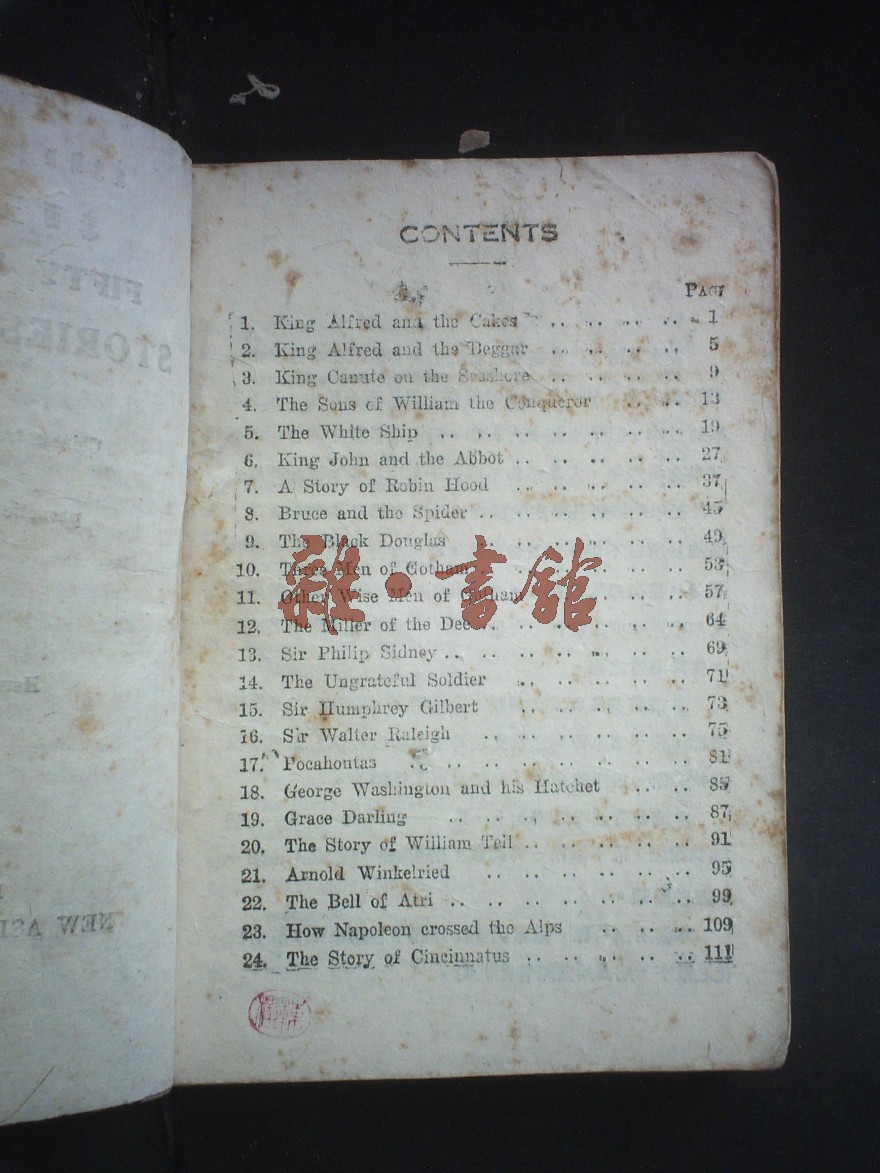 CONTENTS
PAGE
1. King Alfred and the Cakes .. .. .. .. 1
2. King Alfred and the Beggar .. .. .. .. 5
3. King Canute on the Seashore .. .. .. .. 9
4. The Sons of William the Conqueror .. .. 13
5. The White Ship .. .. .. .. .. .. 19
6. King John and the Abbot .. .. .. .. .. 27
7. A Story of Robin Hood .. .. .. .. .. 37
8. Bruce and the Spider .. .. .. .. .. .. 45
9. The Black Douglas .. .. .. .. .. .. 49
10. Three Men of Gotham .. .. .. .. .. .. 53
11. Other Wise Men of Gotham .. .. .. .. 57
12. The Miller of the Dee .. .. .. .. .. .. 64
13. Sir Philip Sidney .. .. .. .. .. .. .. 69
14. The Ungrateful Soldier .. .. .. .. .. 71
15. Sir Humphrey Gilbert .. .. .. .. .. 73
16. Sir Walter Raleigh .. .. .. .. .. .. 75
17. Pocahontas .. .. .. .. .. .. .. .. 81
18. George Washington and his Hatchet .. .. 85
19. Grace Darling .. .. .. .. .. .. .. 87
20. The Story of William Tell .. .. .. .. .. 91
21. Arnold Winkelried .. .. .. .. .. .. 95
22. The Bell of Atri .. .. .. .. .. .. .. 99
23. How Napoleon crossed the Alps .. .. .. 109
24. The Story of Cincinnatus .. .. .. .. .. 111
雜·書館
FIFTY
STORIES
NEW